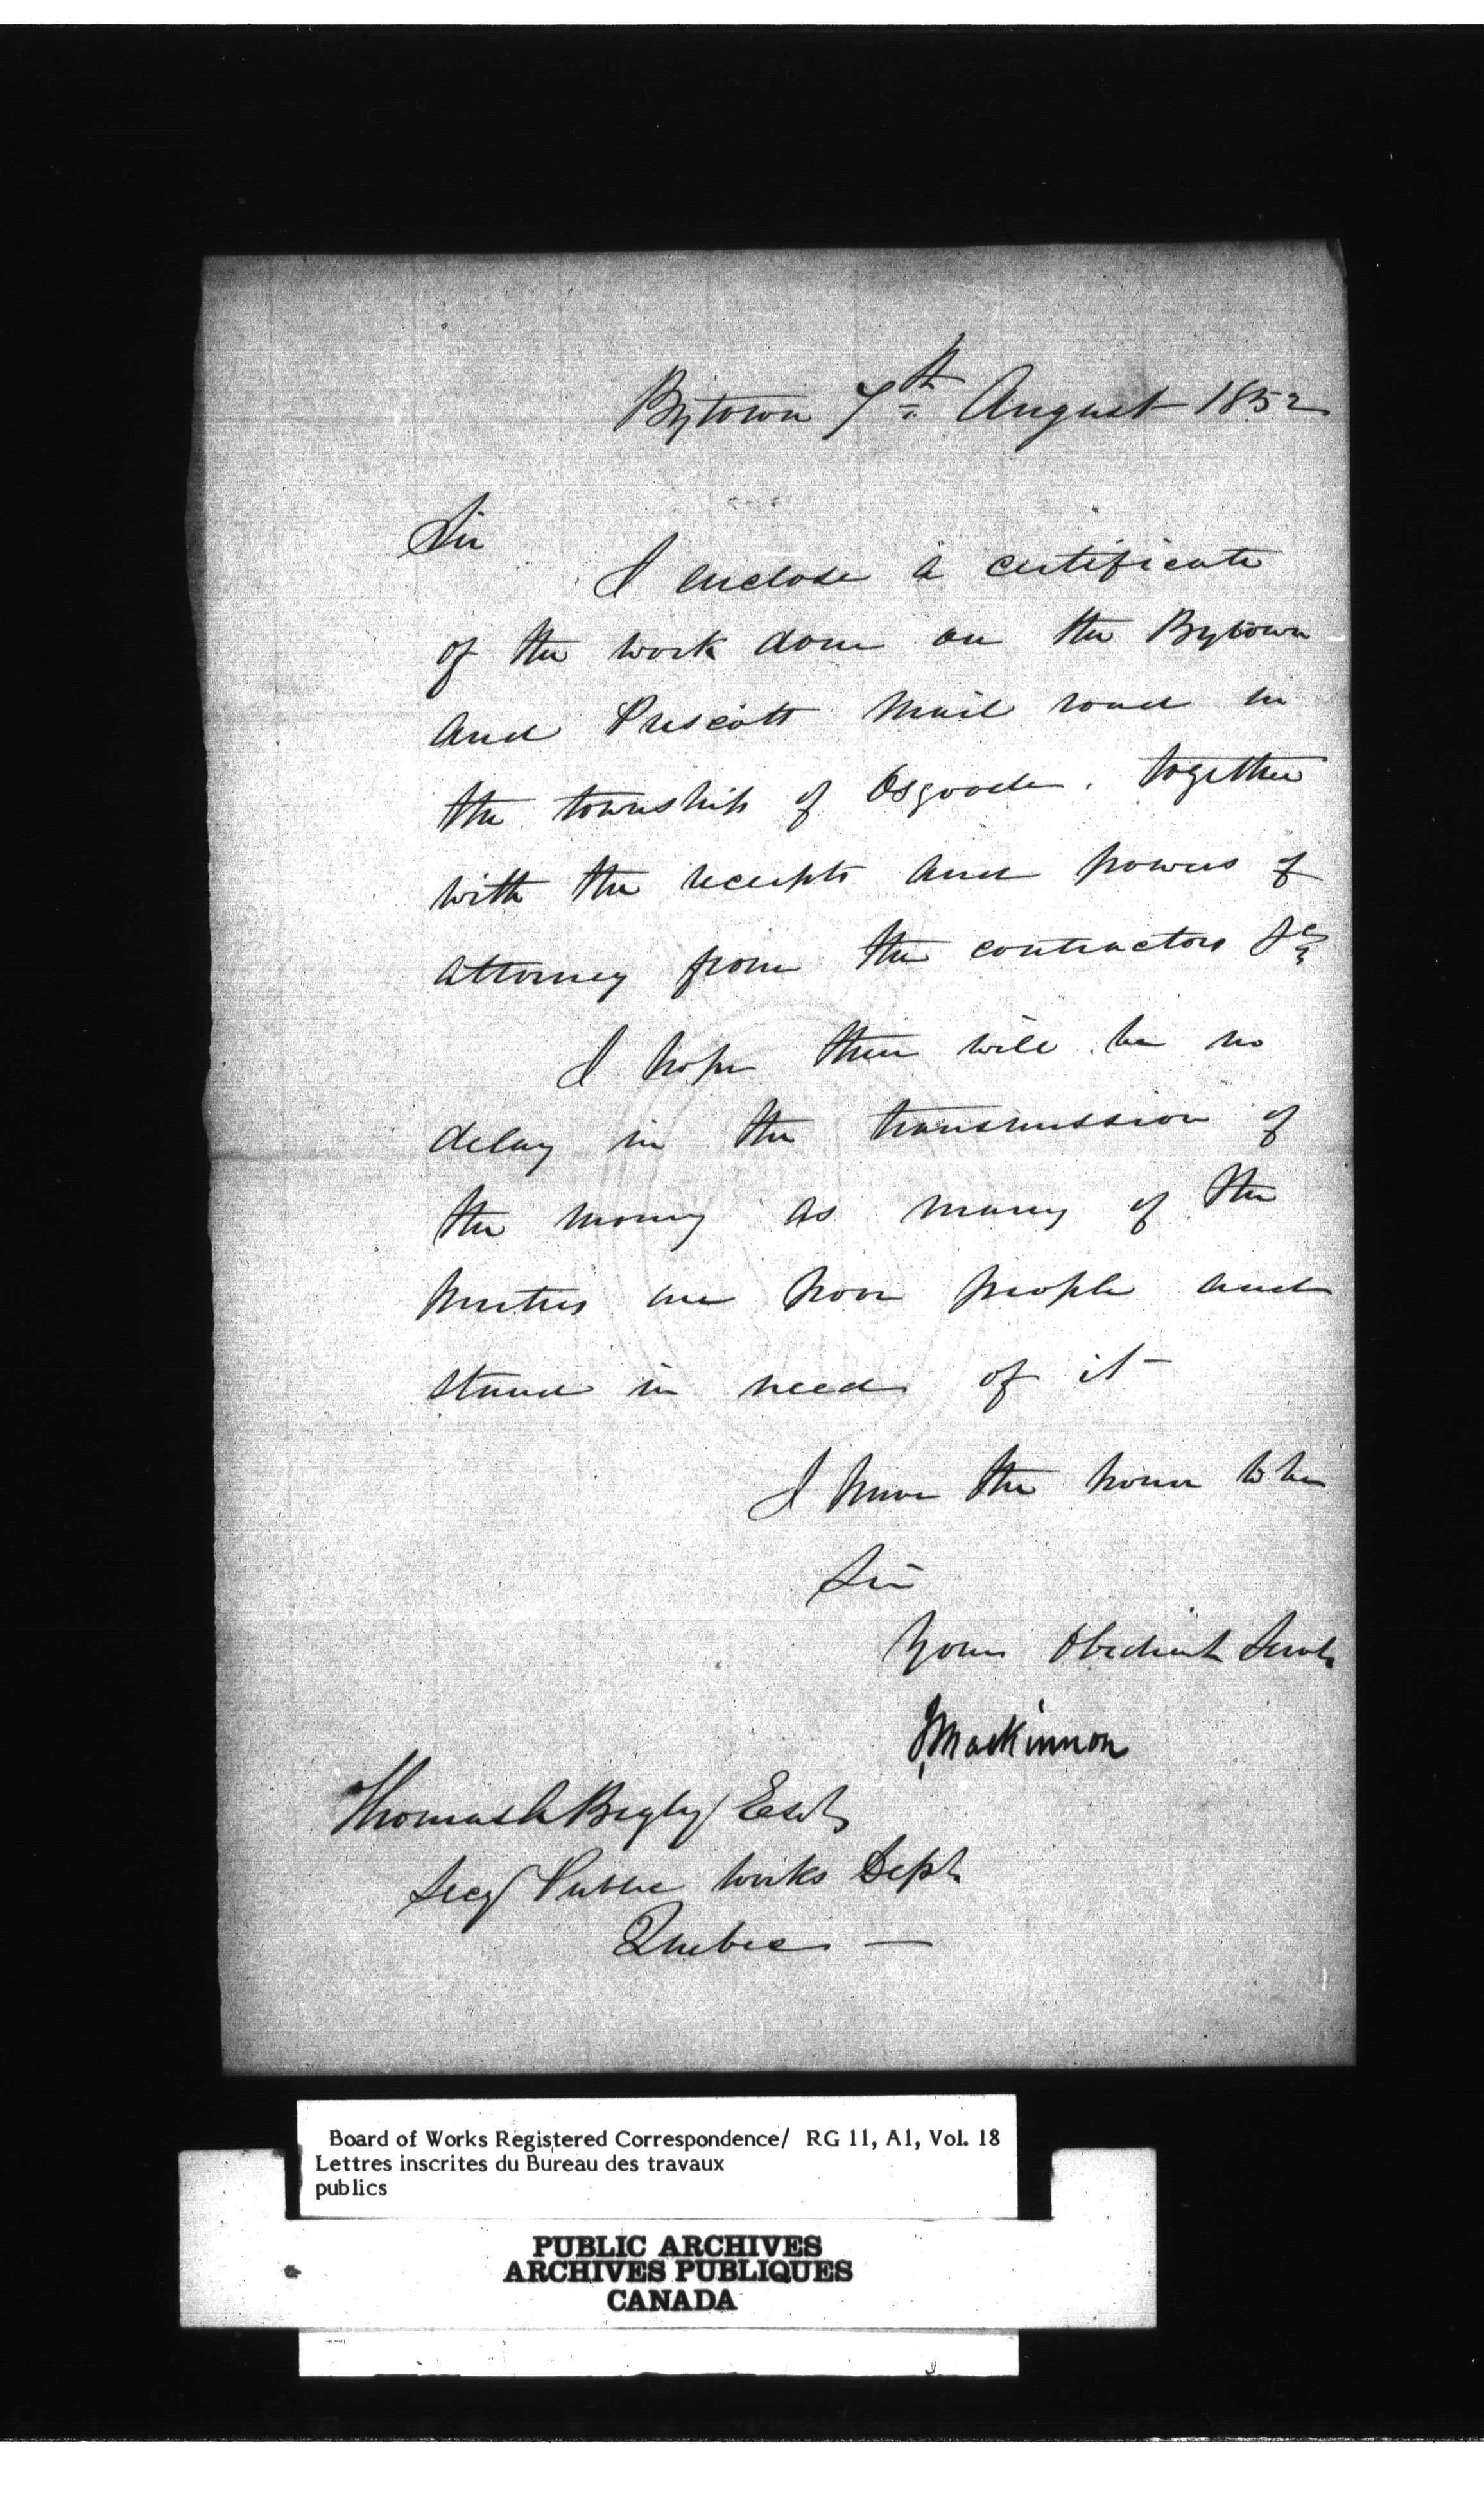 Bytown 7th August 1852
Sir
I enclose a certificate
of the work done on the Bytown
and Prescott Mail road in
the township of Osgoode. together
with the receipts and powers of
attorney from the contractors &c
I hope there will be no
delay in the transmission of
the money as many of the
parties are poor people and
stand in need of it
I have the honor to be
Sir
Your Obedient Servt
JMacKinnon
Thomas A Begly Esqr
Secy Public Works Dept
Quebec —
Board of Works Registered Correspondence/ RG 11, A1, Vol. 18
Lettres inscrites du Bureau des travaux
publics
PUBLIC ARCHIVES
ARCHIVES PUBLIQUES
CANADA